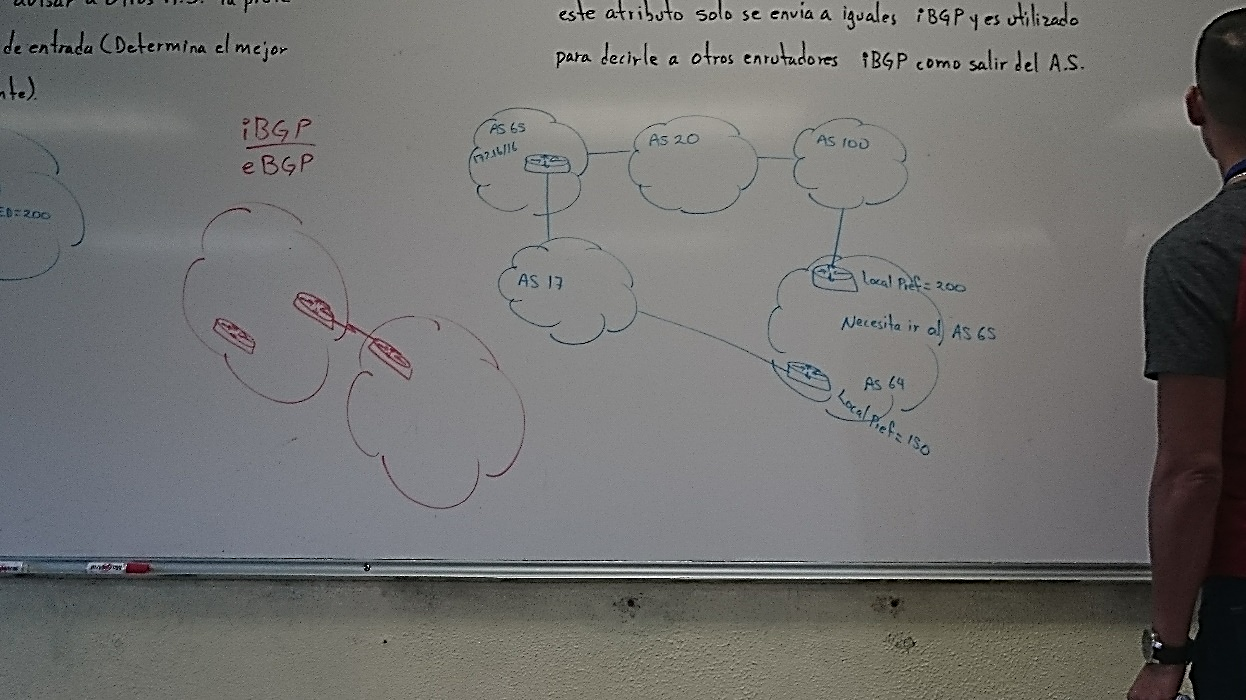 avisar a otros A.S. la
de entrada (Determina el mejor
este atributo solo se envia a iguales iBGP y es utilizado
para decirle a otros enrutadores iBGP como salir del A.S.
iBGP
eBGP
AS 65
172.16/16
AS 20
AS 100
ED=200
AS 17
Local Pref=200
Necesita ir al AS 65
AS 64
Local Pref=150